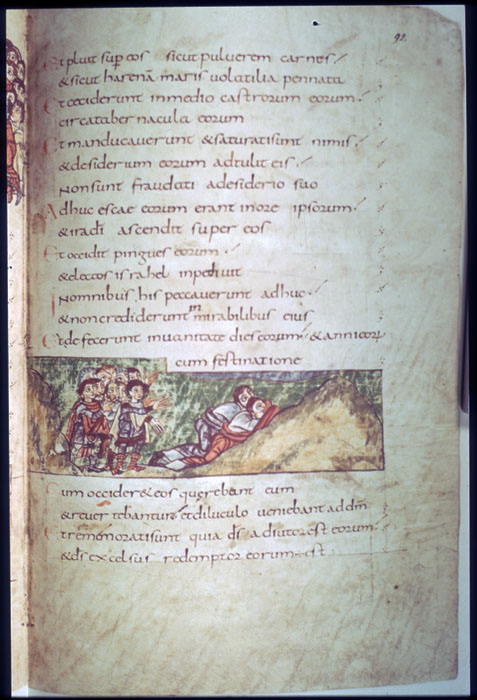 92.
Et pluit sup eos sicut pulverem carnes
& sicut harenā maris volatilia pennata
Et ceciderunt in medio castrorum eorum.
circa tabernacula eorum
Et manducaverunt & saturati sunt nimis.
& desiderium eorum adtulit eis.
Non sunt fraudati a desiderio suo
Adhuc escae eorum erant in ore ipsorum.
& ira dī ascendit super eos
Et occidit pingues eorum.
& electos israhel inpedivit
In omnibus his peccaverunt adhuc.
& non crediderunt in mirabilibus eius
Et defecerunt in vanitate dies eorum & anni eorū
cum festinatione
Cum occider& eos querebant eum
& revertebantur et diluculo veniebant ad dm̄
Et rememorati sunt quia ds̄ adiutor est eorum
& ds̄ excelsus redemptor eorum est